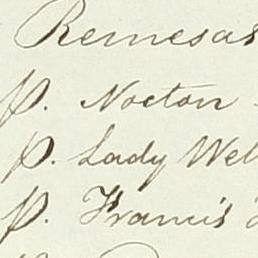 Remesas
p. Nocton
p. Lady Wel
p. Francis